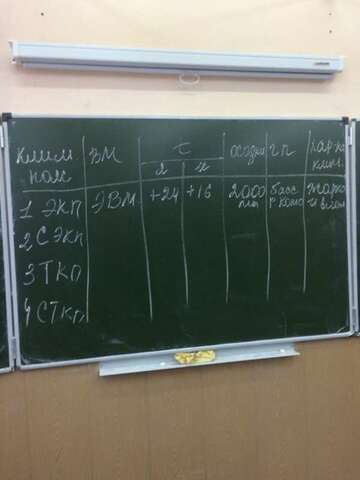 клим ВМ t осадки гп хар-ка
пояс я и клим.
1 ЭКП ЭВМ +24 +16 2000 басс жарко
мм р конго и влаж
2 СЭКП
3 ТКП
4 СТКП